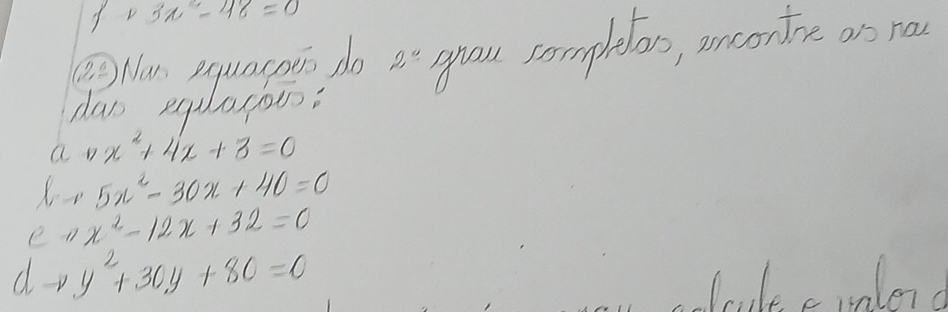 f → 3x² - 48 = 0
2º) Nas equações do 2º grau completas, encontre as raí
das equações:
a → x² + 4x + 3 = 0
b → 5x² - 30x + 40 = 0
c → x² - 12x + 32 = 0
d → y² + 30y + 80 = 0
calcule o valor d